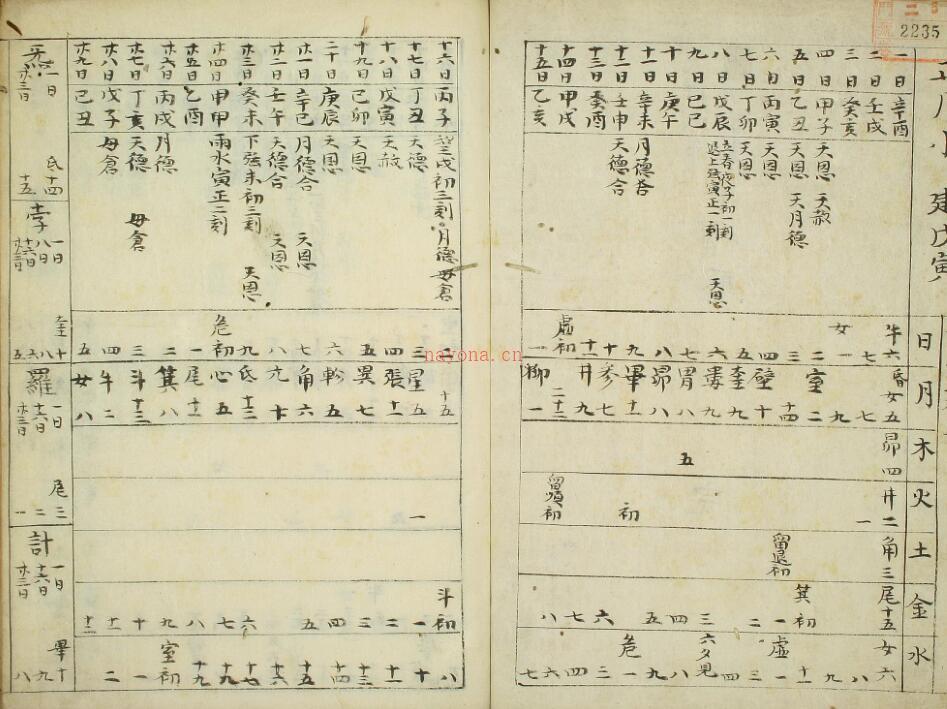 2235
正月小 建戊寅
日
月
木
火
土
金
水
一日 辛酉
二日 壬戌
三日 癸亥
四日 甲子 天恩 天赦
五日 乙丑 天恩 天月德
六日 丙寅 天恩
七日 丁卯 天恩
八日 戊辰 立春 天恩
九日 己巳
十日 庚午
十一日 辛未 月德合
十二日 壬申 天德合
十三日 癸酉
十四日 甲戌
十五日 乙亥
牛六 七 女一 二 三 四 五 六 七 八 九 十 十一 虛初 一
女五 九 室二 十四 壁十 奎九 婁九 胃七 昴八 畢十一 參七 井九 二十三 柳一
昴四 五
井二 一 初
角三 留退初
尾十五 箕初 一 二 三 四 五 六 七 八
女六 八 十一 虛一 三 四 六夕見 八 危一 三 四 六 七
十六日 丙子 望戌初三刻 月德 母倉
十七日 丁丑 天德
十八日 戊寅 天赦
十九日 己卯 天恩
二十日 庚辰 天恩
廿一日 辛巳 月德合 天恩
廿二日 壬午 天德合 天恩
廿三日 癸未 下弦未初三刻 天恩
廿四日 甲申 雨水寅正二刻
廿五日 乙酉
廿六日 丙戌 月德
廿七日 丁亥 天德 母倉
廿八日 戊子 母倉
廿九日 己丑
二 三 四 五 六 七 八 九 危初 一 二 三 四 五
十五 星五 張十一 翼七 軫五 角六 亢十 氐十三 心五 尾十一 箕八 斗十三 牛二 女八
一
斗初 一 二 三 四 五 六 七 八 九 十 十一 十二
八 十 十一 十三 十四 十五 十六 十七 十九 十九 室初 一 二
炁 一日 廿三日
氐十四 十五
孛 一日 八日 十六日 廿三日
奎十 八 六 五
羅 一日 十六日 廿三日
尾三 二 一
計 一日 十六日 廿三日
畢十 九 八
nayona.cn